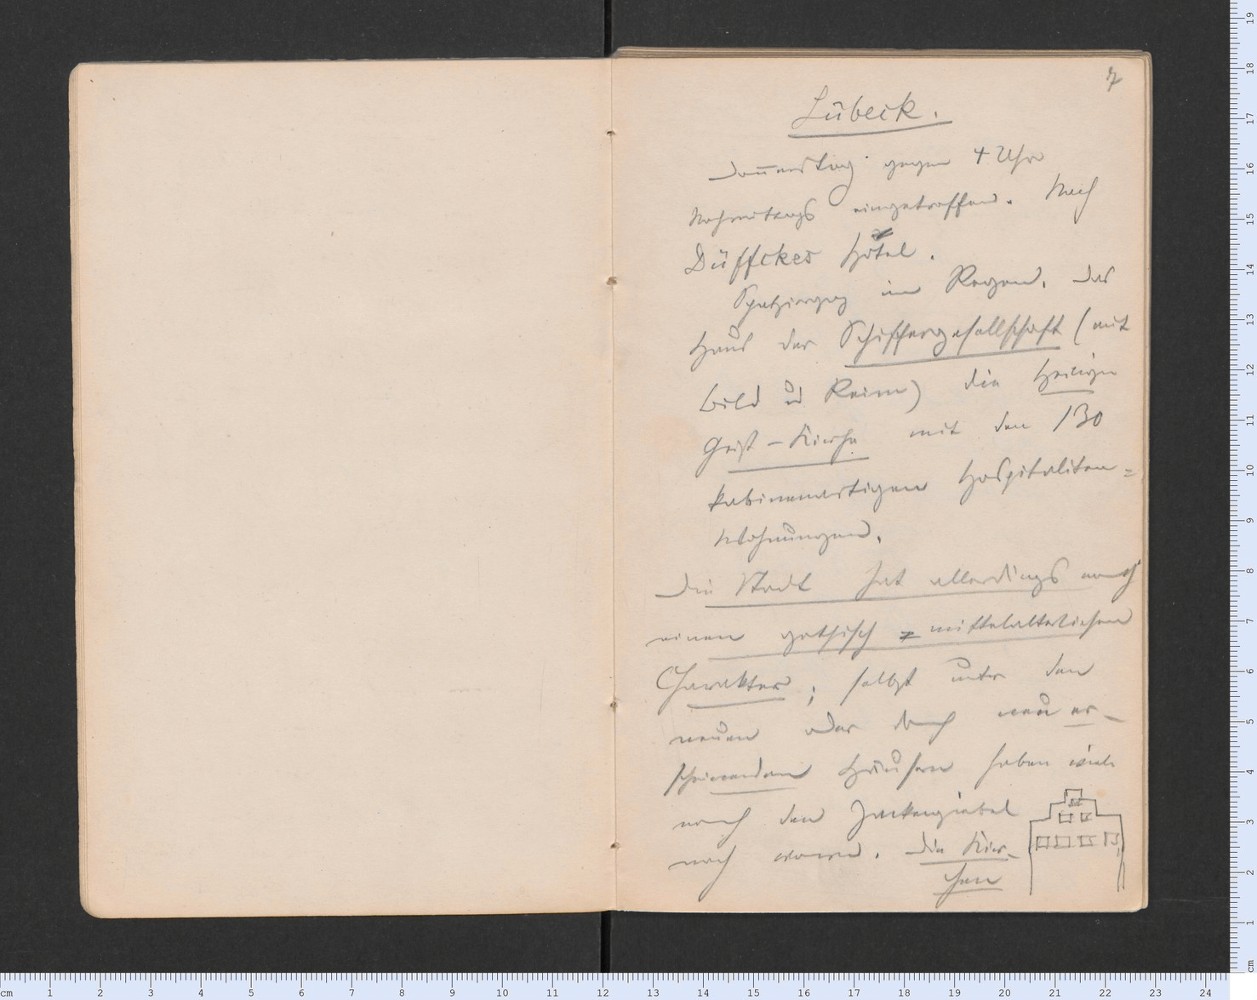 7
Lübeck.
Donnerstag gegen 4 Uhr
Nachmittags eingetroffen. Nach
Düffckes Hôtel.
Spatziergang im Regen. Das
Haus der Schiffergesellschaft (mit
Bild u Reim) die Heilige
Geist-Kirche mit den 130
kabinenartigen Hospitaliten=
Wohnungen.
Die Stadt hat allerdings noch
einen gothisch=mittelalterlichen
Charakter; selbst unter den
neuen oder doch neu er-
scheinenden Häusern haben viele
noch den Zackengiebel
nach vorn. Die Kir-
chen